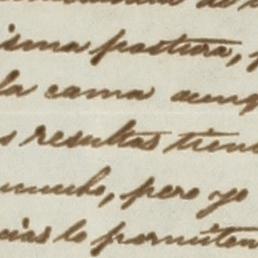 isma postura,
la cama aunq
s resultas tien
mucho, pero yo
cias lo permiten